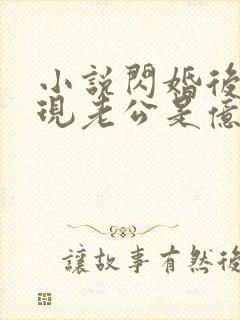 小說閃婚後
現老公是億
讓故事有然後